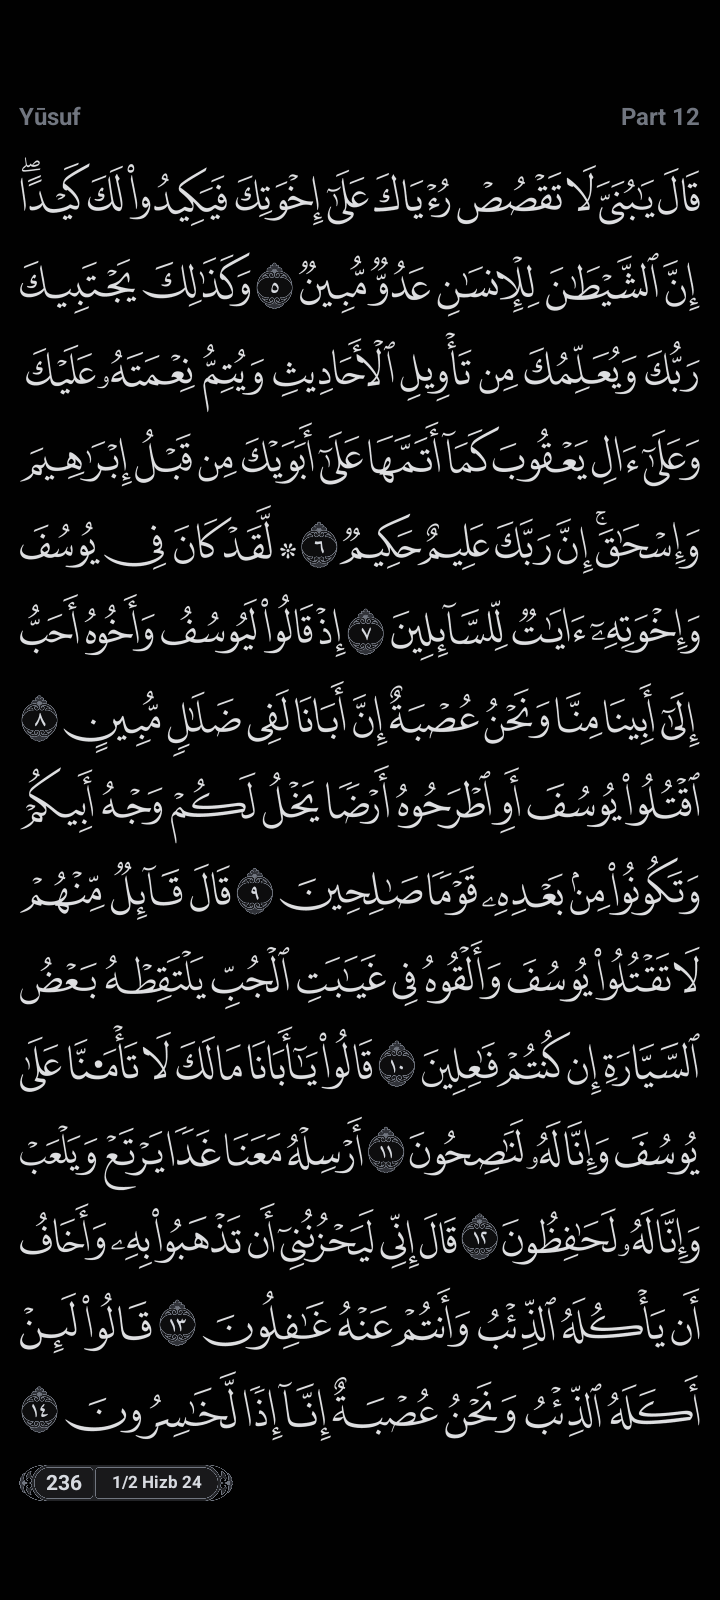 Yūsuf Part 12
قَالَ يَٰبُنَىَّ لَا تَقۡصُصۡ رُءۡيَاكَ عَلَىٰٓ إِخۡوَتِكَ فَيَكِيدُواْ لَكَ كَيۡدًاۖ
إِنَّ ٱلشَّيۡطَٰنَ لِلۡإِنسَٰنِ عَدُوّٞ مُّبِينٞ ٥ وَكَذَٰلِكَ يَجۡتَبِيكَ
رَبُّكَ وَيُعَلِّمُكَ مِن تَأۡوِيلِ ٱلۡأَحَادِيثِ وَيُتِمُّ نِعۡمَتَهُۥ عَلَيۡكَ
وَعَلَىٰٓ ءَالِ يَعۡقُوبَ كَمَآ أَتَمَّهَا عَلَىٰٓ أَبَوَيۡكَ مِن قَبۡلُ إِبۡرَٰهِيمَ
وَإِسۡحَٰقَۚ إِنَّ رَبَّكَ عَلِيمٌ حَكِيمٞ ٦ ۞ لَّقَدۡ كَانَ فِي يُوسُفَ
وَإِخۡوَتِهِۦٓ ءَايَٰتٞ لِّلسَّآئِلِينَ ٧ إِذۡ قَالُواْ لَيُوسُفُ وَأَخُوهُ أَحَبُّ
إِلَىٰٓ أَبِينَا مِنَّا وَنَحۡنُ عُصۡبَةٌ إِنَّ أَبَانَا لَفِي ضَلَٰلٖ مُّبِينٍ ٨
ٱقۡتُلُواْ يُوسُفَ أَوِ ٱطۡرَحُوهُ أَرۡضٗا يَخۡلُ لَكُمۡ وَجۡهُ أَبِيكُمۡ
وَتَكُونُواْ مِنۢ بَعۡدِهِۦ قَوۡمٗا صَٰلِحِينَ ٩ قَالَ قَآئِلٞ مِّنۡهُمۡ
لَا تَقۡتُلُواْ يُوسُفَ وَأَلۡقُوهُ فِي غَيَٰبَتِ ٱلۡجُبِّ يَلۡتَقِطۡهُ بَعۡضُ
ٱلسَّيَّارَةِ إِن كُنتُمۡ فَٰعِلِينَ ١٠ قَالُواْ يَٰٓأَبَانَا مَالَكَ لَا تَأۡمَ۬نَّا عَلَىٰ
يُوسُفَ وَإِنَّا لَهُۥ لَنَٰصِحُونَ ١١ أَرۡسِلۡهُ مَعَنَا غَدٗا يَرۡتَعۡ وَيَلۡعَبۡ
وَإِنَّا لَهُۥ لَحَٰفِظُونَ ١٢ قَالَ إِنِّي لَيَحۡزُنُنِيٓ أَن تَذۡهَبُواْ بِهِۦ وَأَخَافُ
أَن يَأۡكُلَهُ ٱلذِّئۡبُ وَأَنتُمۡ عَنۡهُ غَٰفِلُونَ ١٣ قَالُواْ لَئِنۡ
أَكَلَهُ ٱلذِّئۡبُ وَنَحۡنُ عُصۡبَةٌ إِنَّآ إِذٗا لَّخَٰسِرُونَ ١٤
236 1/2 Hizb 24